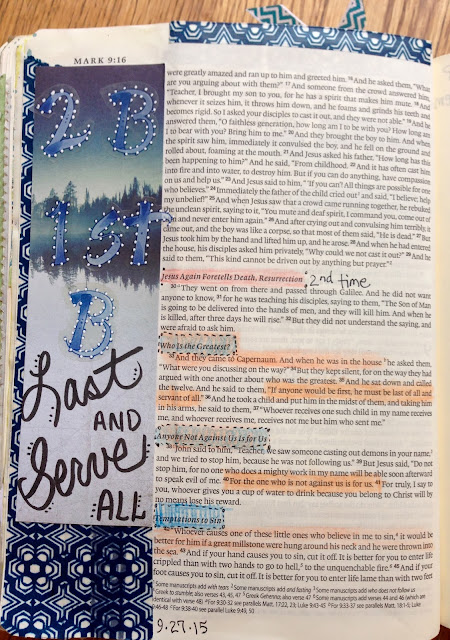 MARK 9:16
2 B
1st
B
Last
AND
Serve
ALL
were greatly amazed and ran up to him and greeted him. 16 And he asked them, "What
are you arguing about with them?" 17 And someone from the crowd answered him,
"Teacher, I brought my son to you, for he has a spirit that makes him mute. 18 And
whenever it seizes him, it throws him down, and he foams and grinds his teeth and
becomes rigid. So I asked your disciples to cast it out, and they were not able." 19 And he
answered them, "O faithless generation, how long am I to be with you? How long am
I to bear with you? Bring him to me." 20 And they brought the boy to him. And when
the spirit saw him, immediately it convulsed the boy, and he fell on the ground and
rolled about, foaming at the mouth. 21 And Jesus asked his father, "How long has this
been happening to him?" And he said, "From childhood. 22 And it has often cast him
into fire and into water, to destroy him. But if you can do anything, have compassion
on us and help us." 23 And Jesus said to him, "'If you can'! All things are possible for one
who believes." 24 Immediately the father of the child cried out and said, "I believe; help
my unbelief!" 25 And when Jesus saw that a crowd came running together, he rebuked
the unclean spirit, saying to it, "You mute and deaf spirit, I command you, come out of
him and never enter him again." 26 And after crying out and convulsing him terribly, it
came out, and the boy was like a corpse, so that most of them said, "He is dead." 27 But
Jesus took him by the hand and lifted him up, and he arose. 28 And when he had entered
the house, his disciples asked him privately, "Why could we not cast it out?" 29 And he
said to them, "This kind cannot be driven out by anything but prayer."
Jesus Again Foretells Death, Resurrection 2nd time
30 They went on from there and passed through Galilee. And he did not want
anyone to know, 31 for he was teaching his disciples, saying to them, "The Son of Man
is going to be delivered into the hands of men, and they will kill him. And when he
is killed, after three days he will rise." 32 But they did not understand the saying, and
were afraid to ask him.
Who Is the Greatest?
33 And they came to Capernaum. And when he was in the house he asked them,
"What were you discussing on the way?" 34 But they kept silent, for on the way they had
argued with one another about who was the greatest. 35 And he sat down and called
the twelve. And he said to them, "If anyone would be first, he must be last of all and
servant of all." 36 And he took a child and put him in the midst of them, and taking him
in his arms, he said to them, 37 "Whoever receives one such child in my name receives
me, and whoever receives me, receives not me but him who sent me."
Anyone Not Against Us Is for Us
38 John said to him, "Teacher, we saw someone casting out demons in your name,
and we tried to stop him, because he was not following us." 39 But Jesus said, "Do not
stop him, for no one who does a mighty work in my name will be able soon afterward
to speak evil of me. 40 For the one who is not against us is for us. 41 For truly, I say to
you, whoever gives you a cup of water to drink because you belong to Christ will by
no means lose his reward.
Temptations to Sin
42 "Whoever causes one of these little ones who believe in me to sin, it would be
better for him if a great millstone were hung around his neck and he were thrown into
the sea. 43 And if your hand causes you to sin, cut it off. It is better for you to enter life
crippled than with two hands to go to hell, to the unquenchable fire. 45 And if your
foot causes you to sin, cut it off. It is better for you to enter life lame than with two feet
9.27.15